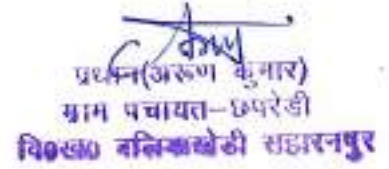 प्रधान(अरूण कुमार)
ग्राम पंचायत-छपरेडी
वि०ख० बलियाखेडी सहारनपुर